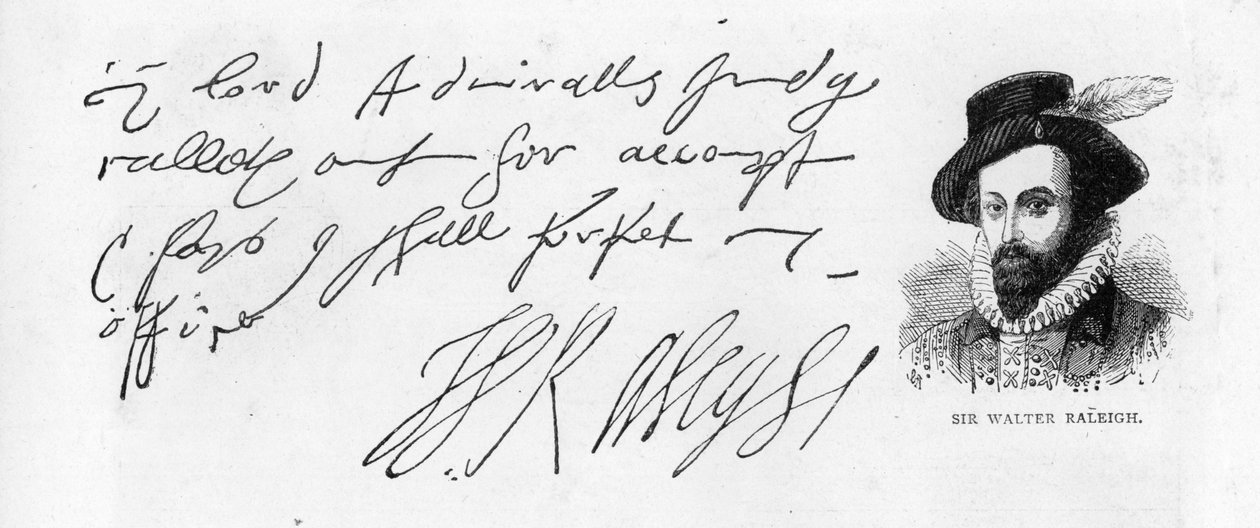 my lord Admiralls
out for accompt
I shall forfet my
office
W Ralegh
SIR WALTER RALEIGH.